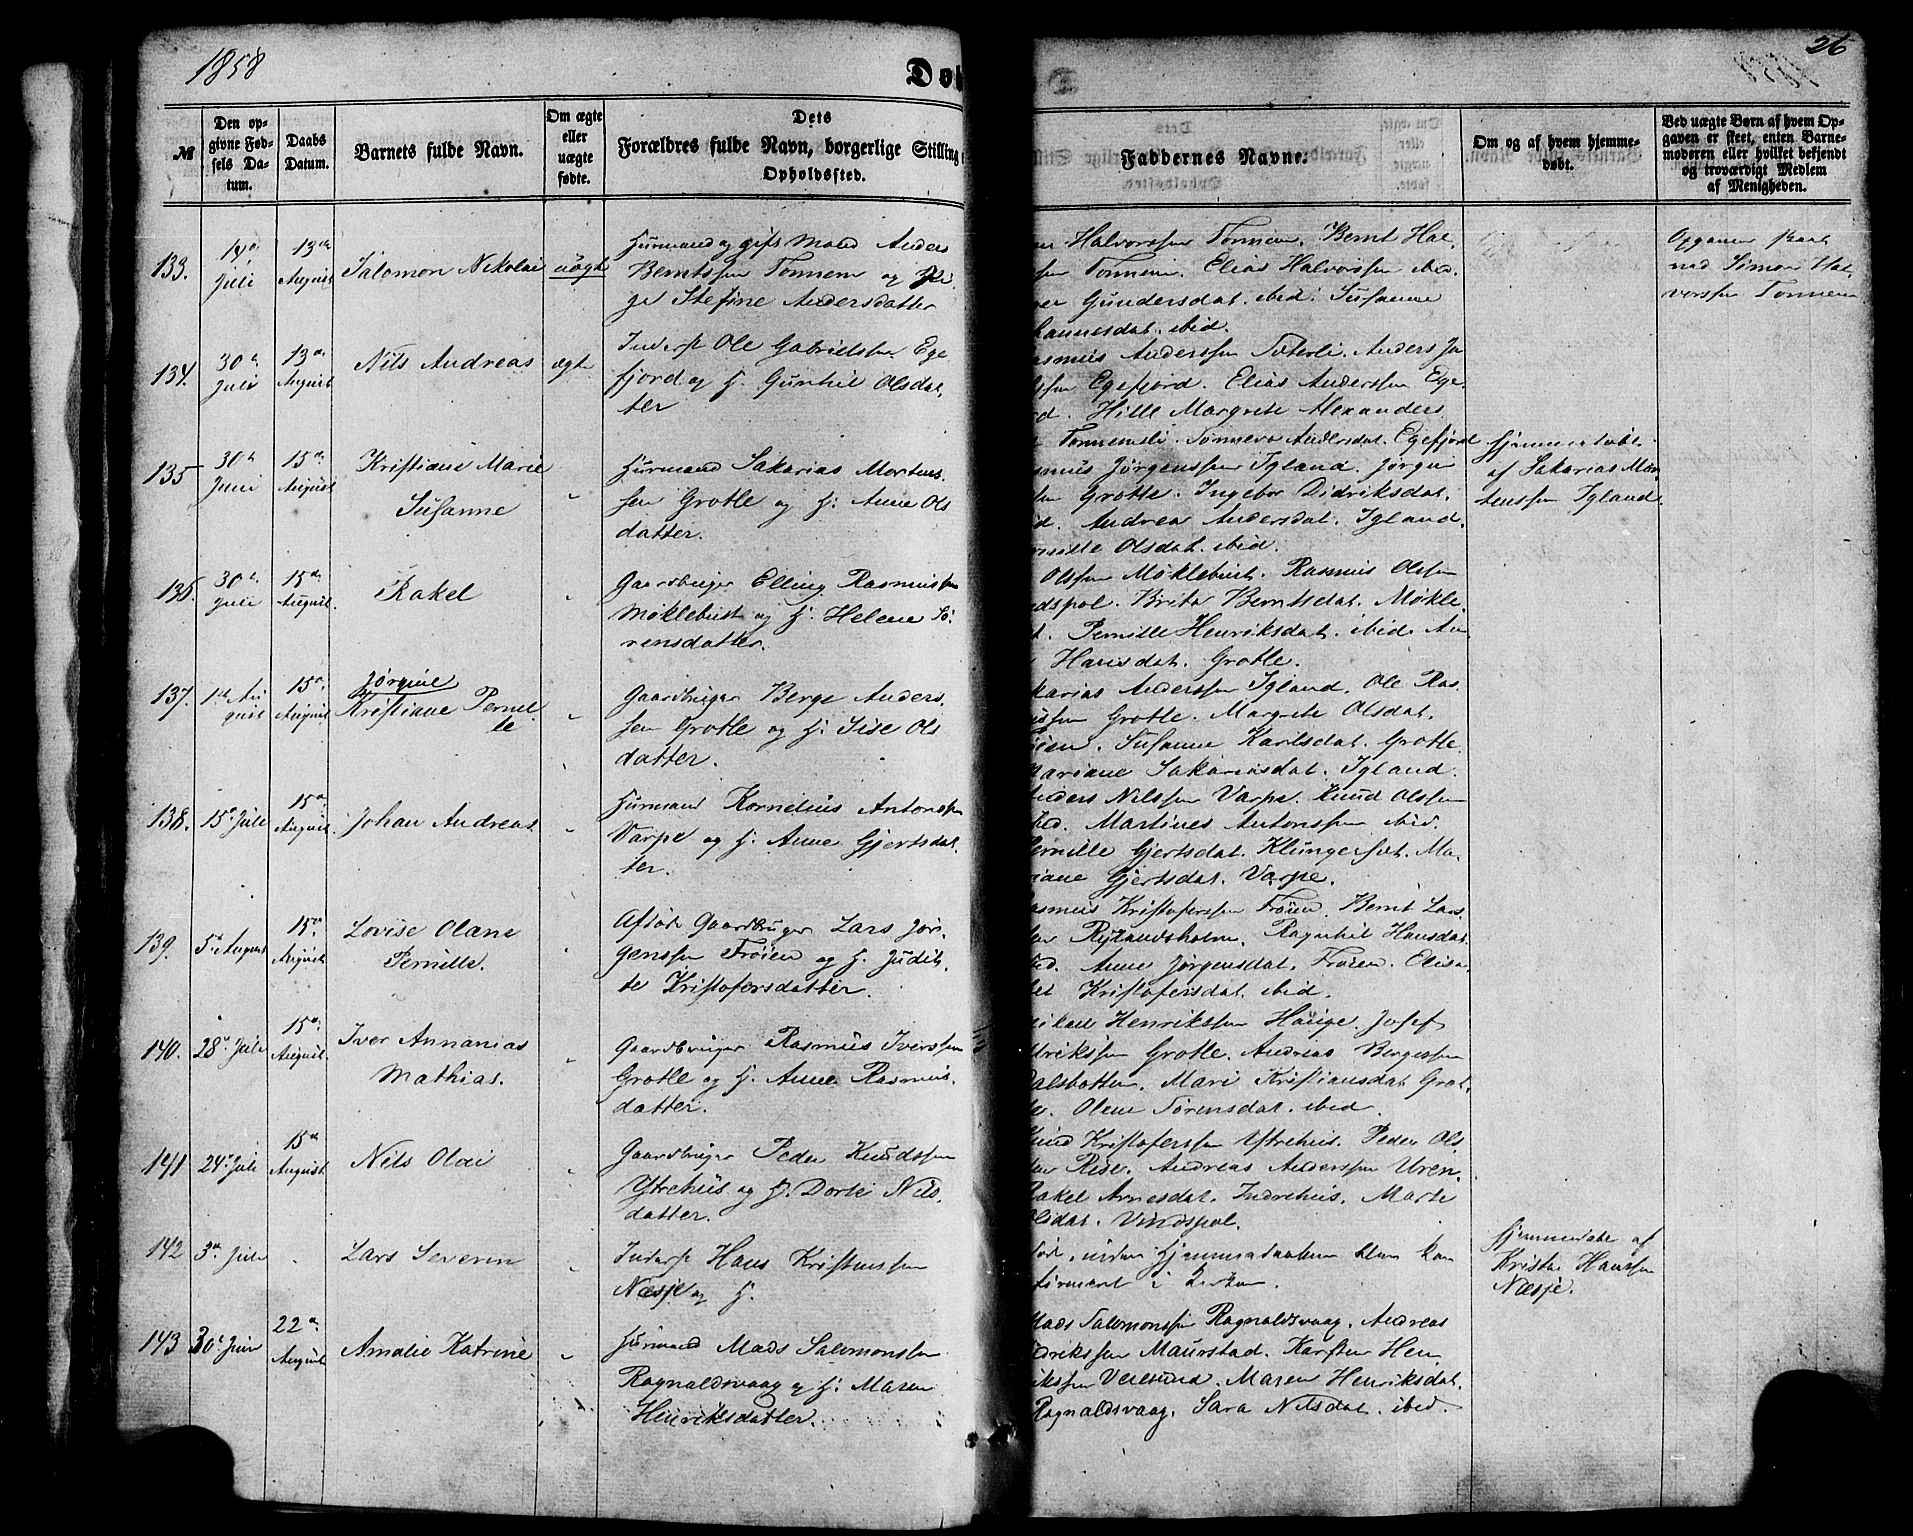 1858
26
Døb
№
Den op-
givne Fød-
sels Da-
tum.
Daabs
Datum.
Barnets fulde Navn.
Om ægte
eller
uægte
fødte.
Dets
Forældres fulde Navn, borgerlige Stilling
Opholdssted.
Faddernes Navne.
Om og af hvem hjemme-
døbt.
Ved uægte Børn af hvem Op-
gaven er skeet, enten Barne-
moderen eller hvilket bekjendt
og troværdigt Medlem
af Menigheden.
133.
Juli
13de
August
Salomon Nikolai
uægte
Huusmand og gift Mand Anders
Berntssen Tonnem og Pi-
ge Stefine Andersdatter
Halvorssen Tonnem. Bernt Hal-
ssen Tonnem. Elias Halvorssen ibid.
Gundersdat. ibid. Susanne
hannesdat. ibid.
Opgaven skeet
ved Simon Hal-
vorssen Tonnem
134.
30te
Juli
13de
August
Nils Andreas
ægte
Inderst Ole Gabrielssen Ege
fjord og H. Gunhil Olsdat-
ter
asmus Anderssen Sæterli. Anders Ja
ssen Egefjord. Elias Anderssen Ege
rd. Hille Margrete Alexanders
Tonnemsli. Sønneva Andersdat. Egefjord
135
30te
Juni
15de
August
Kristiane Marie
Susanne
Huusmand Sakarias Mortens-
sen Grotle og H. Anne Ols
datter.
smus Jørgenssen Igland. Jørgen
sen Grotle. Ingebor Didriksdat.
id. Andrea Andersdat. Igland.
rnille Olsdat. ibid.
Hjemmedøbt
af Sakarias Mor-
tenssen Igland.
136.
30te
Juli
15de
August.
Rakel
Gaardbruger Elling Rasmussen
Møklebust og H. Helene Sø-
rensdatter.
Olssen Møklebust. Rasmus Olssen
dspol. Brita Berntsdat. Møkle-
t. Pernille Henriksdat. ibid. An
Hansdat. Grotle.
137.
1ste Au
gust
15de
August
Jørgine
Kristiane Pernil-
le
Gaardbruger Berge Anders-
sen Grotle og H. Sise Ols
datter.
karias Anderssen Igland. Ole Ras-
ussen Grotle. Margrete Olsdat.
øien. Susanne Karlsdat. Grotle.
Mariane Sakariasdat. Igland.
138.
15de Juli
15de
August
Johan Andreas
Huusmand Kornelius Antonssen
Varpe og H. Anne Gjertsdat-
ter.
Anders Nilssen Varpe. Knud Olssen
ibid. Martines Antonssen ibid.
Pernille Gjertsdat. Klungerset. Ma-
riane Gjertsdat. Varpe.
139.
5te August
15de
August
Lovise Olane
Pernille.
Afdøde Gaardbruger Lars Jør-
genssen Frøien og H. Judit-
te Kristofersdatter.
Rasmus Kristoferssen Frøien. Bernt Lars-
sen Rylandsholm. Ragnhil Hansdat.
ibid. Anne Jørgensdat. Frøien. Elisa-
bet Kristofersdat. ibid.
140.
28de Juli
15de
August
Iver Annanias
Mathias.
Gaardbruger Rasmus Iverssen
Grotle og H. Anne Rasmus-
datter.
Mikael Henrikssen Hauge. Josef
drikssen Grotle. Andreas Bergessen
Dalsbotten. Mari Kristiansdat. Grot-
le. Olene Sørensdat. ibid.
141
24de Juli
15de
August
Nils Olai
Gaardbruger Peder Knudssen
Ytrehus og H. Dorte Nils-
datter.
Knud Kristoferssen Ytrehus. Peder Ols-
sen Rise. Andreas Anderssen Uren.
Rakel Arnesdat. Indrehus. Marte
Olsdat. Vindspol.
142
3de Juli
Lars Severin
Inderst Hans Kristenssen
Næsje og H.
død, inden Hjemmedaaben blev kon
firmeret i Kirken.
Hjemmedøbt af
Krista Hanssen
Næsje.
143
30te Juni
22de
August
Amalie Katrine
Huusmand Mads Salomonssen
Ragnaldsvaag og H. Maren
Henriksdatter.
Mads Salomonssen Ragnaldsvaag. Andreas
drikssen Maurstad. Karsten Hen-
rikssen Vedesund. Maren Henriksdat.
Ragnaldsvaag. Sara Nilsdat. ibid.